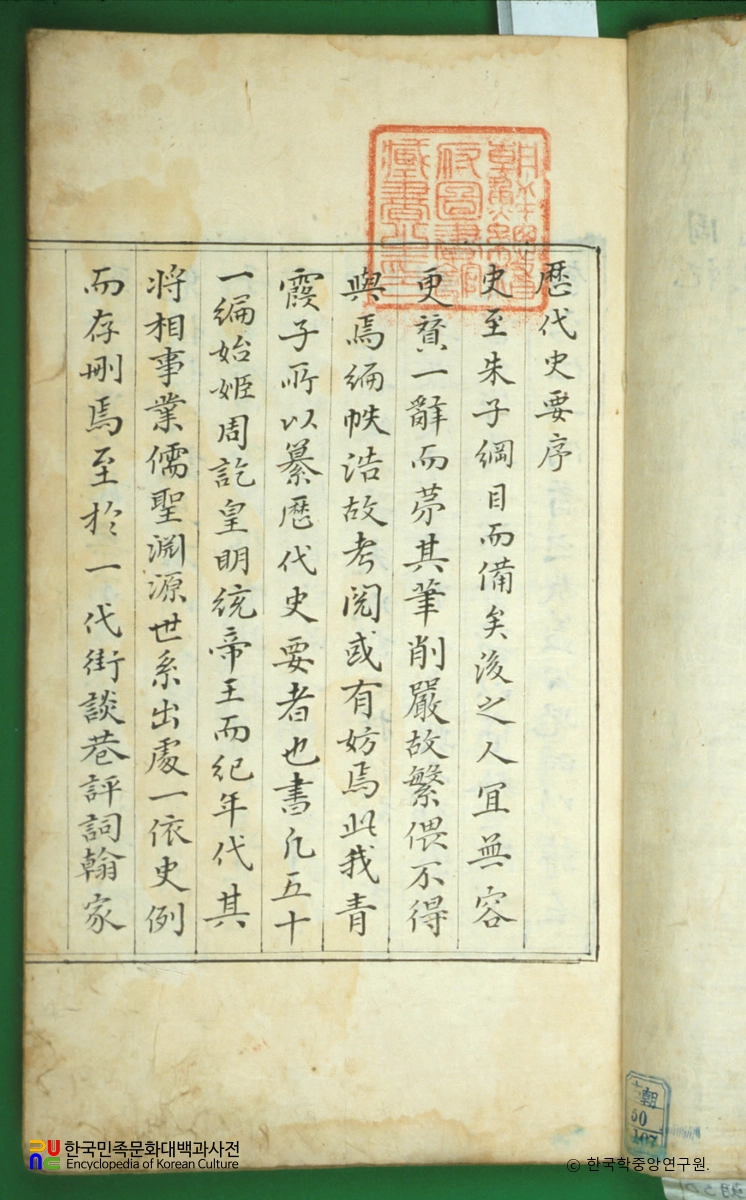 歷代史要序
史至朱子綱目而備矣後之人宜無容
更贅一辭而第其筆削嚴故繁偎不得
與焉編帙浩故考閱或有妨焉此我青
霞子所以纂歷代史要者也書凡五十
一編始姬周訖皇明統帝王而紀年代其
將相事業儒聖淵源世系出處一依史例
而存刪焉至於一代街談巷評詞翰家
朝
50
107
한국민족문화대백과사전
Encyclopedia of Korean Culture
© 한국학중앙연구원.